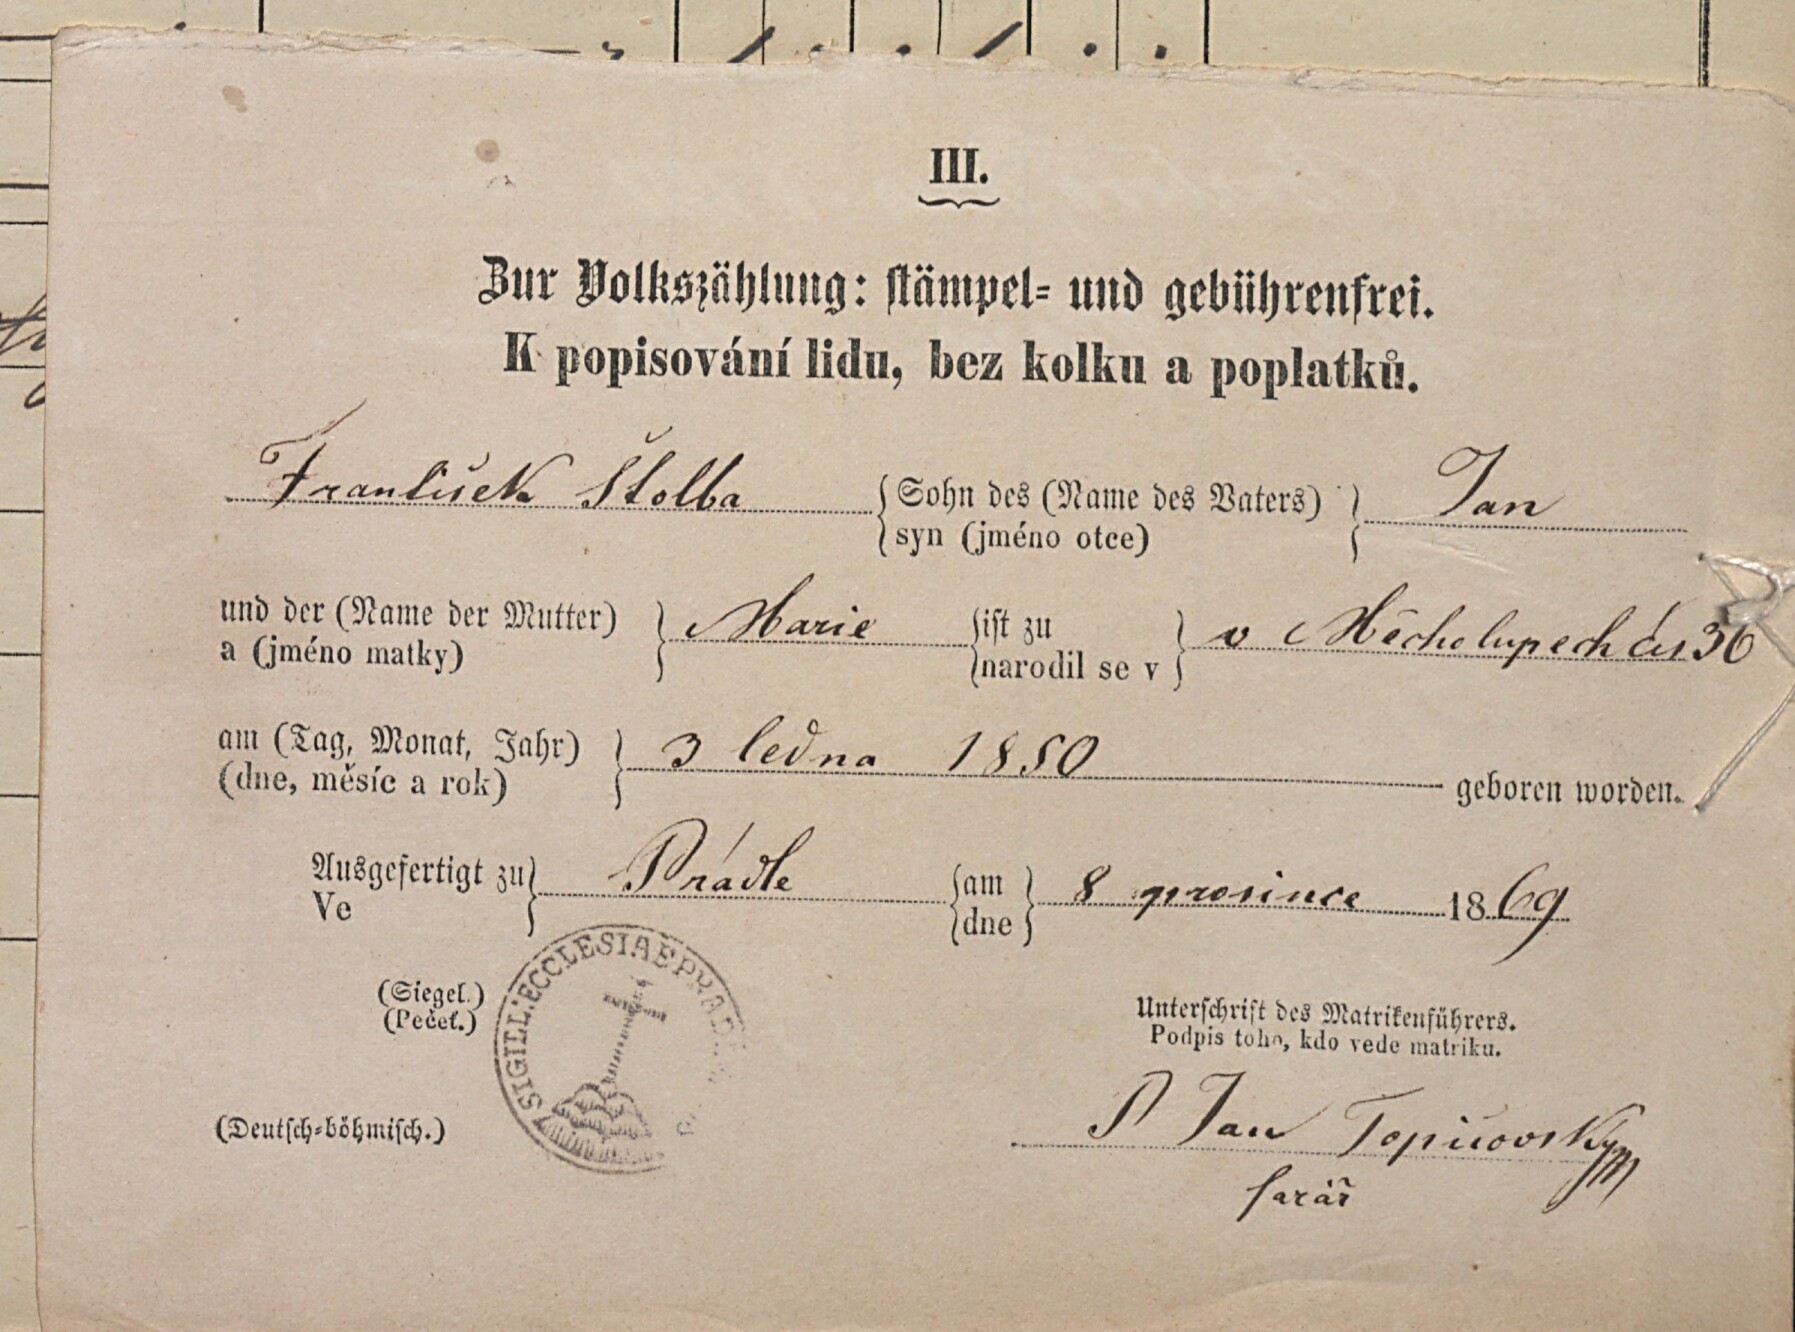 III.
Zur Volkszählung: stämpel- und gebührenfrei.
K popisování lidu, bez kolku a poplatků.
František Štolba { Sohn des (Name des Vaters) } Jan
syn (jméno otce)
und der (Name der Mutter) } Marie { ist zu } v Měcholupech čís 36
a (jméno matky) narodil se v
am (Tag, Monat, Jahr) } 3 ledna 1850 geboren worden.
(dne, měsíc a rok)
Ausgefertigt zu } Prádle { am } 8 prosince 1869
Ve dne
(Siegel.)
(Pečeť.)
SIGILL: ECCLESIAE
Unterschrift des Matrikenführers.
Podpis toho, kdo vede matriku.
(Deutsch-böhmisch.)
P Jan
farář